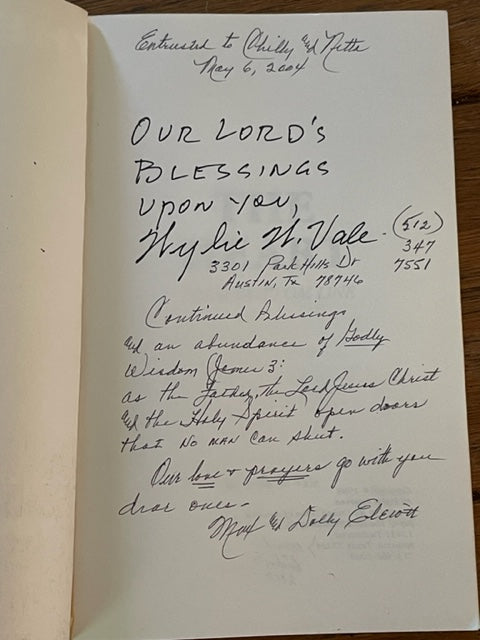 Entrusted to Chilly and Nette
May 6, 2004
OUR LORD'S
BLESSINGS
UPON YOU,
Wylie W. Vale
(512)
347
7551
3301 Park Hills Dr
Austin, Tx 78746
Continued Blessings
and an abundance of Godly
Wisdom James 3:
as the Father, the Lord Jesus Christ
and the Holy Spirit open doors
that NO MAN Can shut.
Our love & prayers go with you
dear ones -
and Dolly